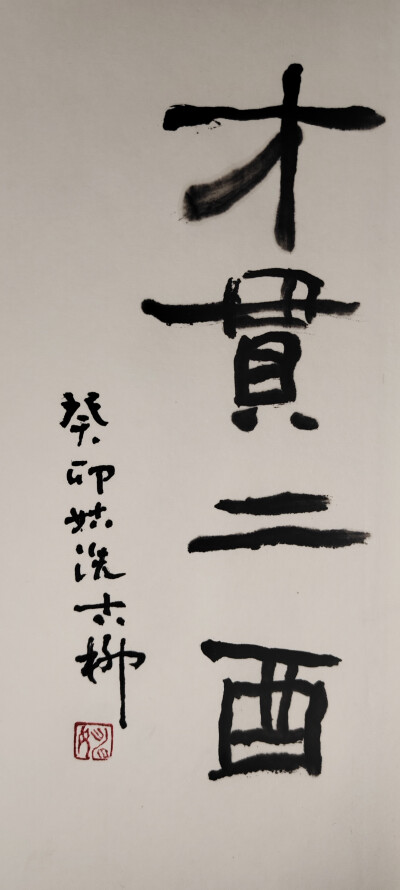 才貫二酉
癸卯姑洗古柳